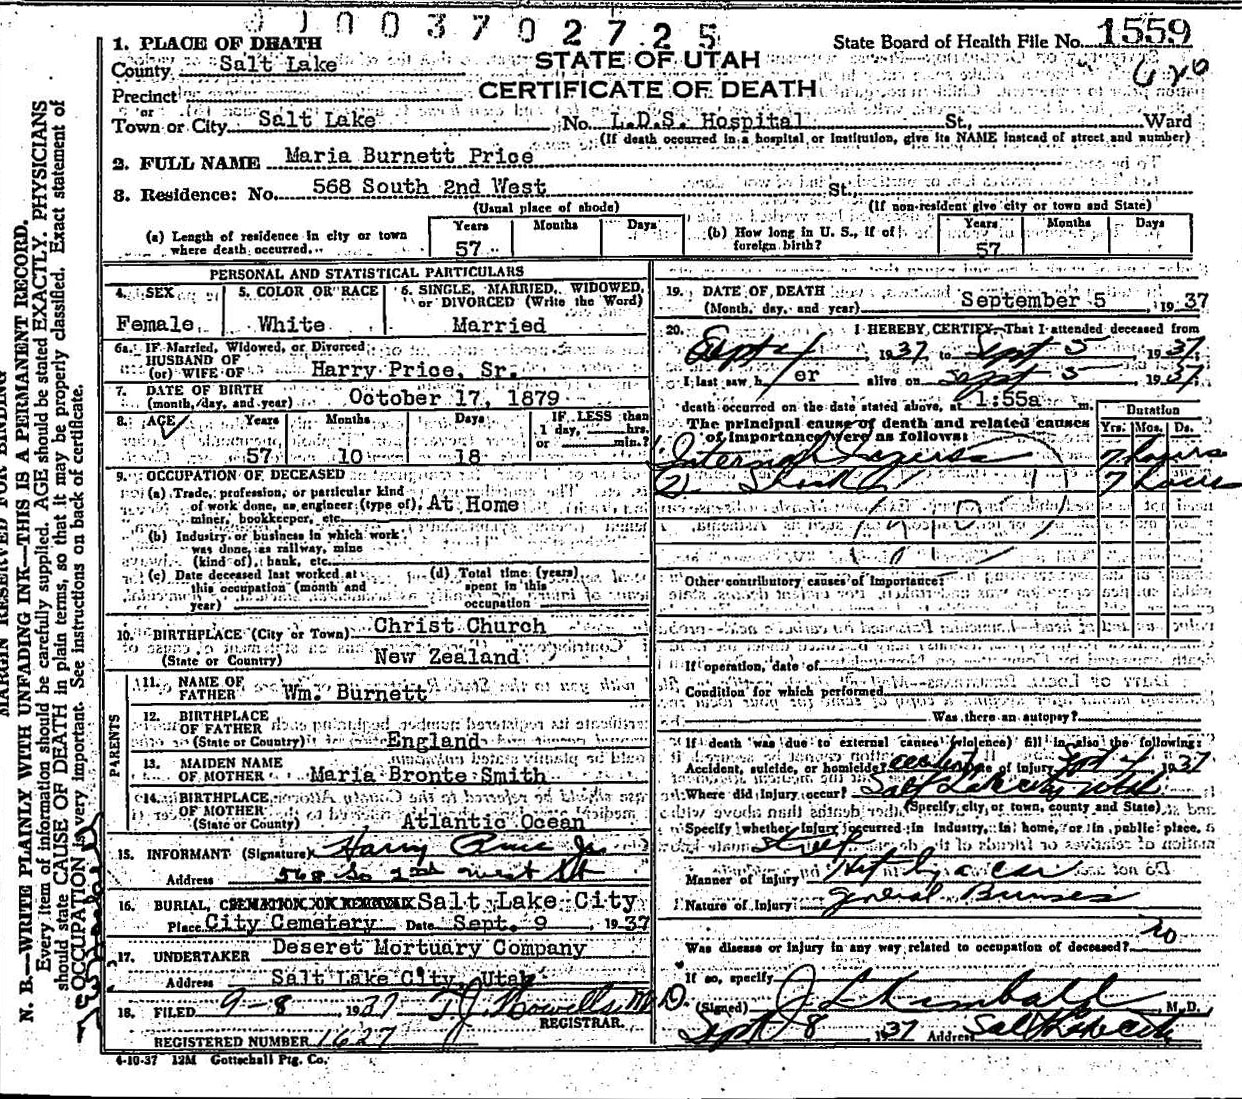 003702725
State Board of Health File No. 1559
1. PLACE OF DEATH
STATE OF UTAH
CERTIFICATE OF DEATH
County Salt Lake
Precinct
or
Town or City Salt Lake No. L.D.S. Hospital St., Ward
(If death occurred in a hospital or institution, give its NAME instead of street and number)
2. FULL NAME Maria Burnett Price
3. Residence: No. 568 South 2nd West St.
(Usual place of abode) (If non-resident give city or town and State)
(a) Length of residence in city or town where death occurred... Years 57 Months Days
(b) How long in U. S., if of foreign birth? Years 57 Months Days
PERSONAL AND STATISTICAL PARTICULARS
4. SEX Female
5. COLOR OR RACE White
6. SINGLE, MARRIED, WIDOWED, or DIVORCED (Write the Word) Married
6a. IF Married, Widowed, or Divorced
HUSBAND OF
(or) WIFE OF Harry Price, Sr.
7. DATE OF BIRTH
(month, day, and year) October 17, 1879
8. AGE Years 57 Months 10 Days 18 IF LESS than 1 day, hrs. or min.?
9. OCCUPATION OF DECEASED
(a) Trade, profession, or particular kind
of work done, as engineer (type of), At Home
miner, bookkeeper, etc.
(b) Industry or business in which work
was done, as railway, mine
(kind of), bank, etc.
(c) Date deceased last worked at this occupation (month and year)
(d) Total time (years) spent in this occupation
10. BIRTHPLACE (City or Town) Christ Church
(State or Country) New Zealand
PARENTS
11. NAME OF FATHER Wm. Burnett
12. BIRTHPLACE OF FATHER
(State or Country) England
13. MAIDEN NAME OF MOTHER Maria Bronte Smith
14. BIRTHPLACE OF MOTHER
(State or Country) Atlantic Ocean
15. INFORMANT (Signature) Harry Price Jr
Address 568 So 2nd West St
16. BURIAL, CREMATION OR REMOVAL Salt Lake City
Place City Cemetery Date Sept. 9, 1937
17. UNDERTAKER Deseret Mortuary Company
Address Salt Lake City, Utah
18. FILED 9-8 1937 T.J. Howells M.D.
REGISTRAR.
REGISTERED NUMBER 1627
4-10-37 12M Gottschall Ptg. Co.
19. DATE OF DEATH
(Month, day, and year) September 5, 1937
20. I HEREBY CERTIFY, That I attended deceased from
Sept 4, 1937 to Sept 5, 1937
I last saw her alive on Sept 5 1937
death occurred on the date stated above, at 1:55a m.
The principal cause of death and related causes
of importance were as follows:
Duration
Yrs. Mos. Ds.
Internal 7 hours
(2) Shock 7 hours
Other contributory causes of importance:
If operation, date of
Condition for which performed
Was there an autopsy?
If death was due to external causes (violence) fill in also the following:
Accident, suicide, or homicide? accident Date of injury Sept 4 1937
Where did injury occur? Salt Lake City Utah
(Specify city, or town, county and State)
Specify whether injury occurred in industry, in home, or in public place,
Street
Manner of injury Hit by a car
Nature of injury general Bruises
Was disease or injury in any way related to occupation of deceased? no
If so, specify
(Signed) J. L. Kimball M.D.
Sept 8, 1937 Address Salt Lake City
MARGIN RESERVED FOR BINDING
N. B.—WRITE PLAINLY WITH UNFADING INK—THIS IS A PERMANENT RECORD.
Every item of information should be carefully supplied. AGE should be stated EXACTLY. PHYSICIANS
should state CAUSE OF DEATH in plain terms, so that it may be properly classified. Exact statement of
OCCUPATION is very important. See instructions on back of certificate.